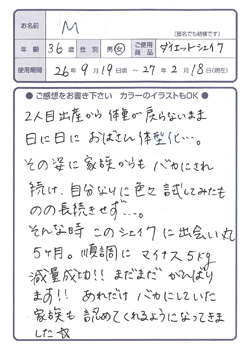 お名前 M (匿名でも結構です)
年齢 36歳 性別 男・女 ご使用商品 ダイエットシェイク
使用期間 26年9月19日頃 ~ 27年2月18日(現在)
●ご感想をお書き下さい カラーのイラストもOK●
2人目出産から体重が戻らないまま
日に日に おばさん体型化…。
その姿に家族からも バカにされ
続け、自分なりに色々試してみたも
のの長続きせず…。
そんな時 このシェイクに出会い丸
5ヶ月。順調に マイナス5kg
減量成功!! まだまだ がんばり
ます!! あれだけ バカにしていた
家族も 認めてくれるようになってきま
した☆